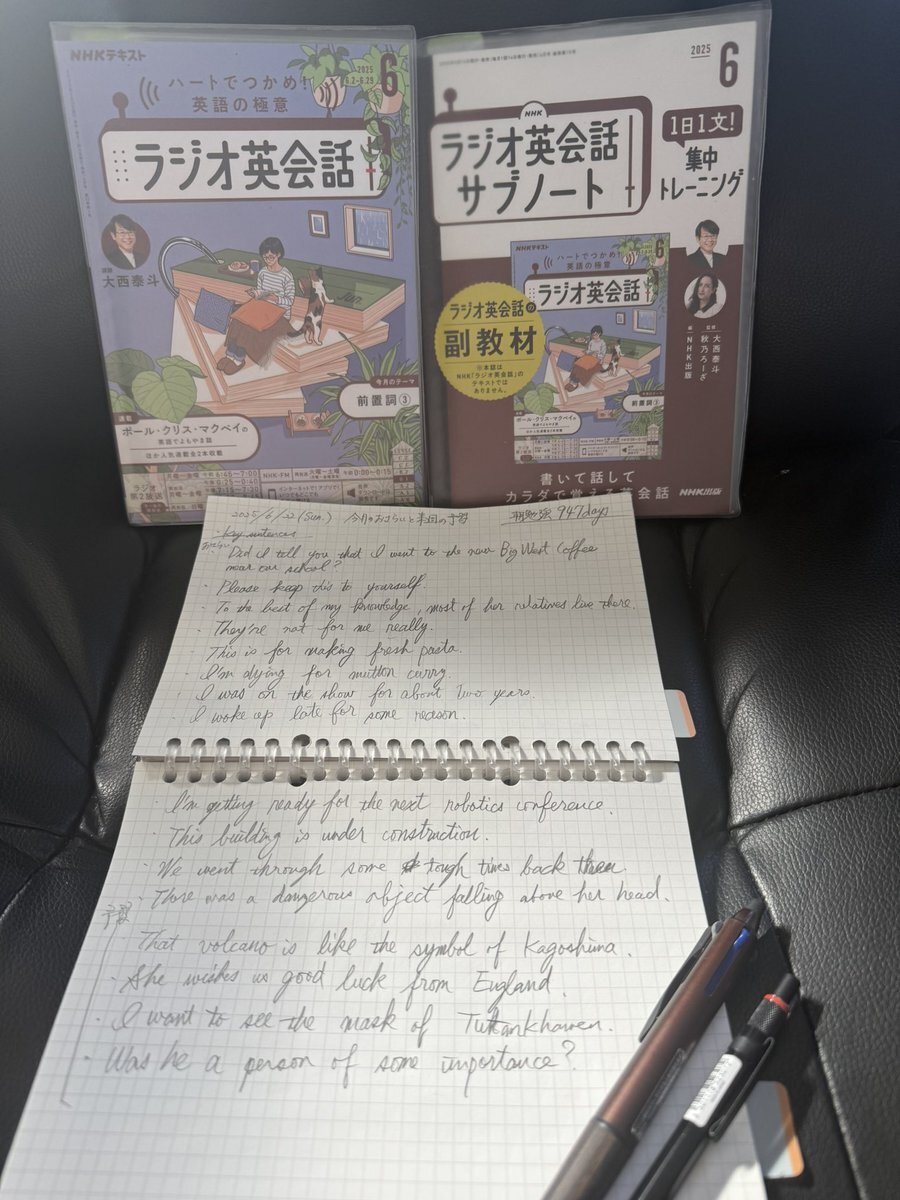 NHKテキスト
2025
6
6.2-6.29
ハートでつかめ!
英語の極意
ラジオ英会話
講師
大西泰斗
今月のテーマ
前置詞③
連載
ポール・クリス・マクベイの
英語でよもやま話
ほか人気連載全2本収載
ラジオ
第2放送
NHK-FM
2025
6
NHK
ラジオ英会話
サブノート
1日1文!
集中
トレーニング
NHKテキスト
6
ハートでつかめ!
英語の極意
ラジオ英会話
ラジオ英会話の
副教材
※本誌は
NHK「ラジオ英会話」の
テキストでは
ありません。
監修 大西泰斗
秋乃ろーざ
編 NHK出版
書いて話して
カラダで覚える英会話
NHK出版
2025/6/22 (Sun.) 今月のおさらいと来週の予習 朝勉強 947days
key sentences
おさらい
・Did I tell you that I went to the new Big West Coffee
near our school?
・Please keep this to yourself.
・To the best of my knowledge, most of her relatives live there.
・They're not for me really.
・This is for making fresh pasta.
・I'm dying for mutton curry.
・I was on the show for about two years.
・I woke up late for some reason.
・I'm getting ready for the next robotics conference.
・This building is under construction.
・We went through some tough times back then.
・There was a dangerous object falling above her head.
予習
・That volcano is like the symbol of Kagoshima.
・She wishes us good luck from England.
・I want to see the mask of Tuttankhamen.
・Was he a person of some importance?